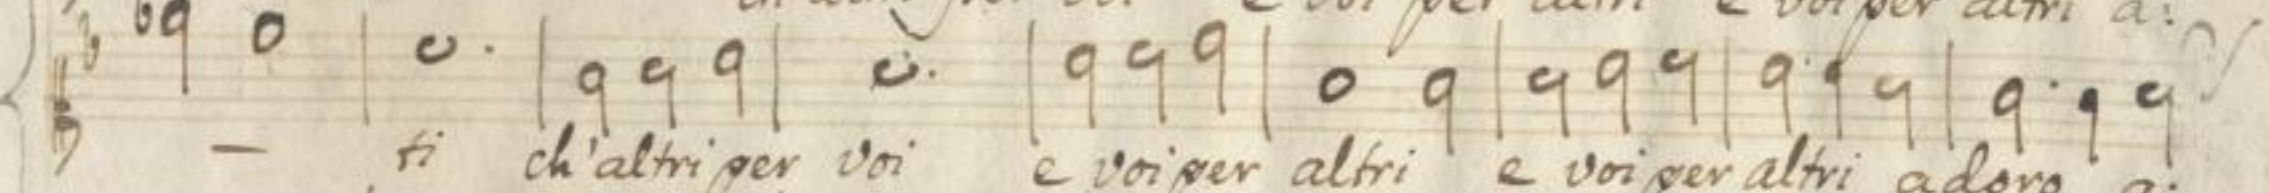 e voi per altri e voi per altri a:
- ti ch'altri per voi e voi per altri e voi per altri adoro a: